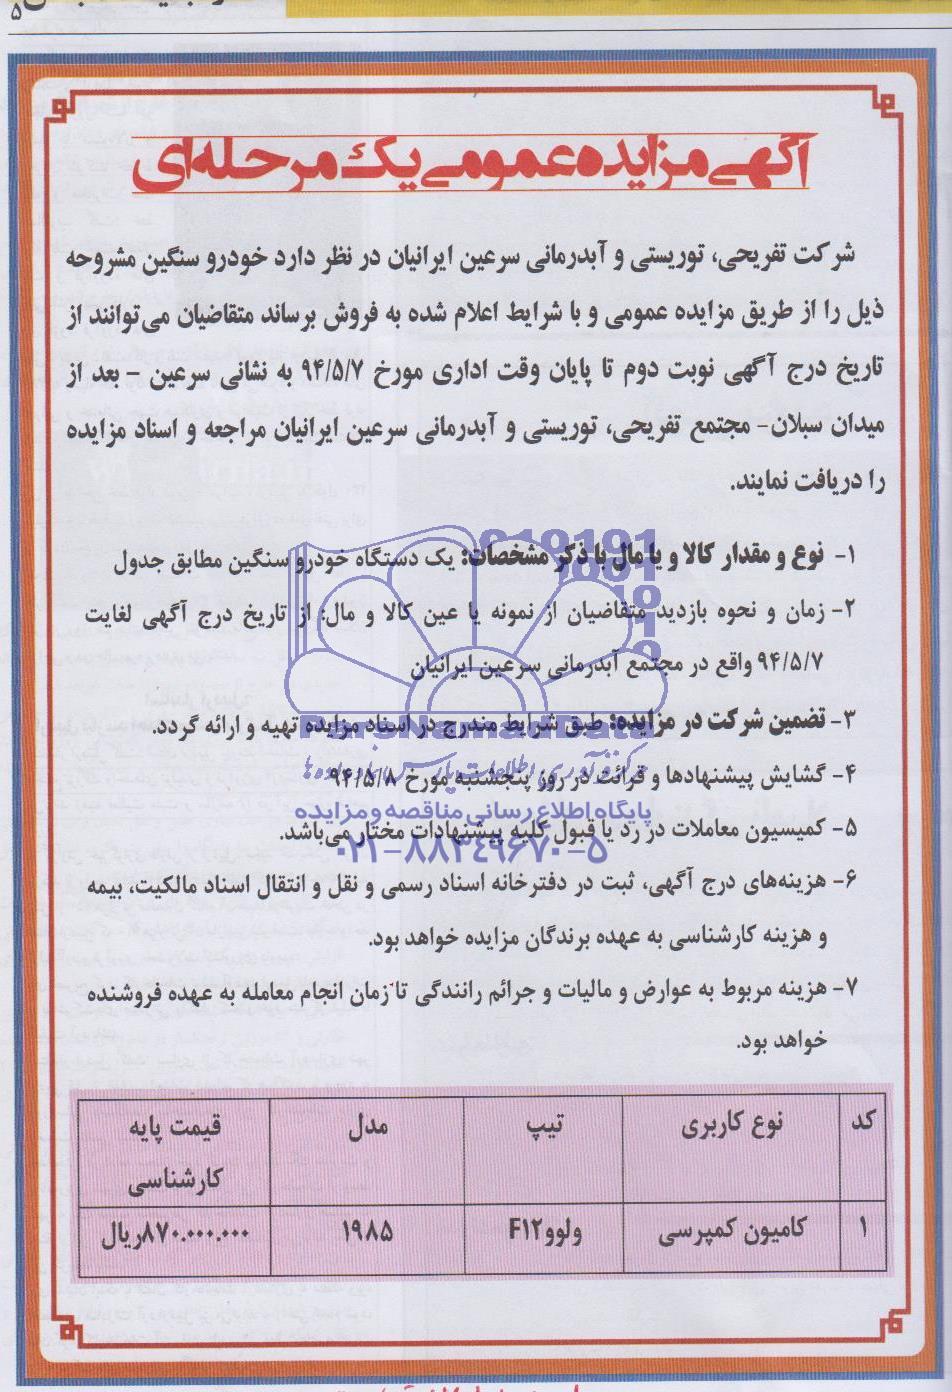 ۵
آگهی مزایده عمومی یک مرحله‌ای
شرکت تفریحی، توریستی و آبدرمانی سرعین ایرانیان در نظر دارد خودرو سنگین مشروحه
ذیل را از طریق مزایده عمومی و با شرایط اعلام شده به فروش برساند متقاضیان می‌توانند از
تاریخ درج آگهی نوبت دوم تا پایان وقت اداری مورخ ۹۴/۵/۷ به نشانی سرعین – بعد از
میدان سبلان- مجتمع تفریحی، توریستی و آبدرمانی سرعین ایرانیان مراجعه و اسناد مزایده
را دریافت نمایند.
۱- نوع و مقدار کالا و یا مال با ذکر مشخصات: یک دستگاه خودرو سنگین مطابق جدول
۲- زمان و نحوه بازدید متقاضیان از نمونه یا عین کالا و مال: از تاریخ درج آگهی لغایت
۹۴/۵/۷ واقع در مجتمع آبدرمانی سرعین ایرانیان
۳- تضمین شرکت در مزایده: طبق شرایط مندرج در اسناد مزایده تهیه و ارائه گردد.
ParsNamadData
۴- گشایش پیشنهادها و قرائت در روز پنجشنبه مورخ ۹۴/۵/۸
پایگاه اطلاع رسانی مناقصه و مزایده
۵- کمیسیون معاملات در رد یا قبول کلیه پیشنهادات مختار می‌باشد.
۰۲۱-۸۸۳۴۹۶۷۰-۵
۶- هزینه‌های درج آگهی، ثبت در دفترخانه اسناد رسمی و نقل و انتقال اسناد مالکیت، بیمه
و هزینه کارشناسی به عهده برندگان مزایده خواهد بود.
۷- هزینه مربوط به عوارض و مالیات و جرائم رانندگی تا زمان انجام معامله به عهده فروشنده
خواهد بود.
کد نوع کاربری تیپ مدل قیمت پایه
کارشناسی
۱ کامیون کمپرسی ولووF۱۲ ۱۹۸۵ ۸۷۰.۰۰۰.۰۰۰ریال